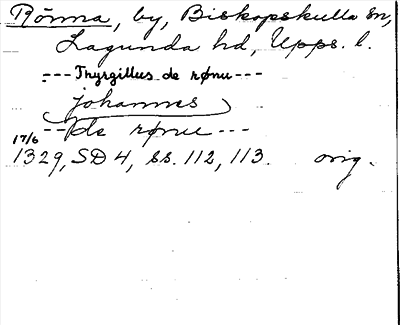 Rönna, by, Biskopskulla sn,
Lagunda hd, Upps. l.
---Thyrgillus de rønu---
johannes
--de rønu---
17/6
1329, SD 4, ss. 112, 113. orig.